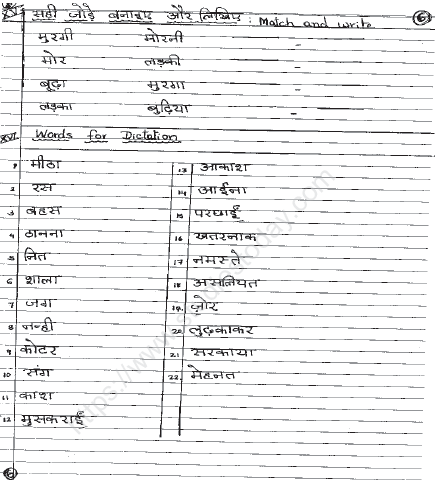 XV सही जोड़े बनाइए और लिखिए : Match and write
मुरगी मोरनी -
मोर लड़की -
बूढ़ा मुरगा -
लड़का बुढ़िया -
XVI. Words for Dictation
1 मीठा
2 रस
3 बहस
4 ठानना
5 नित
6 शाला
7 जग
8 नन्ही
9 कोटर
10 संग
11 काश
12 मुसकराई
13 आकाश
14 आईना
15 परछाई
16 खतरनाक
17 नमस्ते
18 असलियत
19 ज़ोर
20 लुढ़काकर
21 सरकाया
22 मेहनत